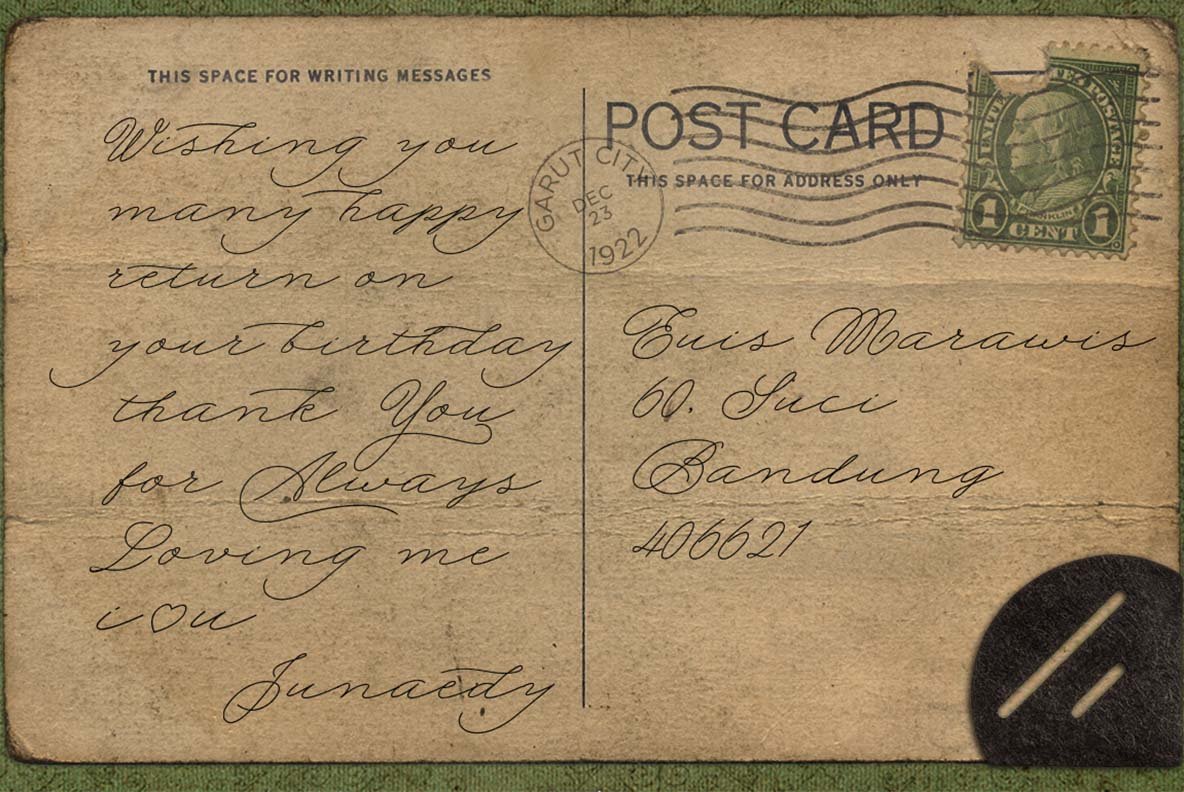 THIS SPACE FOR WRITING MESSAGES
Wishing you
many happy
return on
your birthday
thank You
for Always
Loving me
i ♡ u
Junaedy
POST CARD
THIS SPACE FOR ADDRESS ONLY
GARUT CITY
DEC
23
1922
FRANKLIN
1 CENT 1
Euis Marawis
60. Suci
Bandung
406621